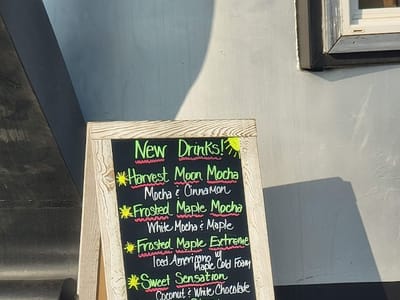 New Drinks!
Harvest Moon Mocha
Mocha & Cinnamon
Frosted Maple Mocha
White Mocha & Maple
Frosted Maple Extreme
Iced Americano w/
Maple Cold Foam
Sweet Sensation
Coconut & White Chocolate